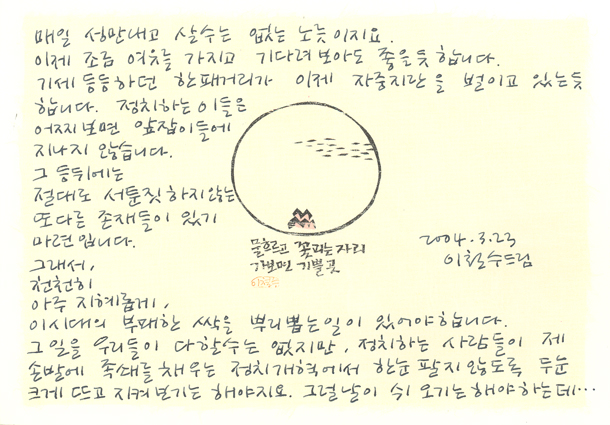 매일 성만내고 살수는 없는 노릇이지요.
이제 조금 여유를 가지고 기다려보아도 좋을듯합니다.
기세등등하던 한패거리가 이제 자중지란을 벌이고 있는듯
합니다. 정치하는이들은
어찌보면 앞잡이들에
지나지 않습니다.
그 등뒤에는
절대로 서툰짓하지않는
또다른 존재들이 있기
마련입니다.
그래서,
천천히
아주 지혜롭게,
이시대의 부패한 싹을 뿌리뽑는일이 있어야합니다.
그일을 우리들이 다할수는 없지만, 정치하는 사람들이 제
손발에 족쇄를 채우는 정치개혁에서 한눈 팔지 않도록 두눈
크게 뜨고 지켜보기는 해야지요. 그럴날이 쉬 오기는해야하는데…
물흐르고 꽃피는자리
가보면 기쁠곳
2004.3.23
이철수드림